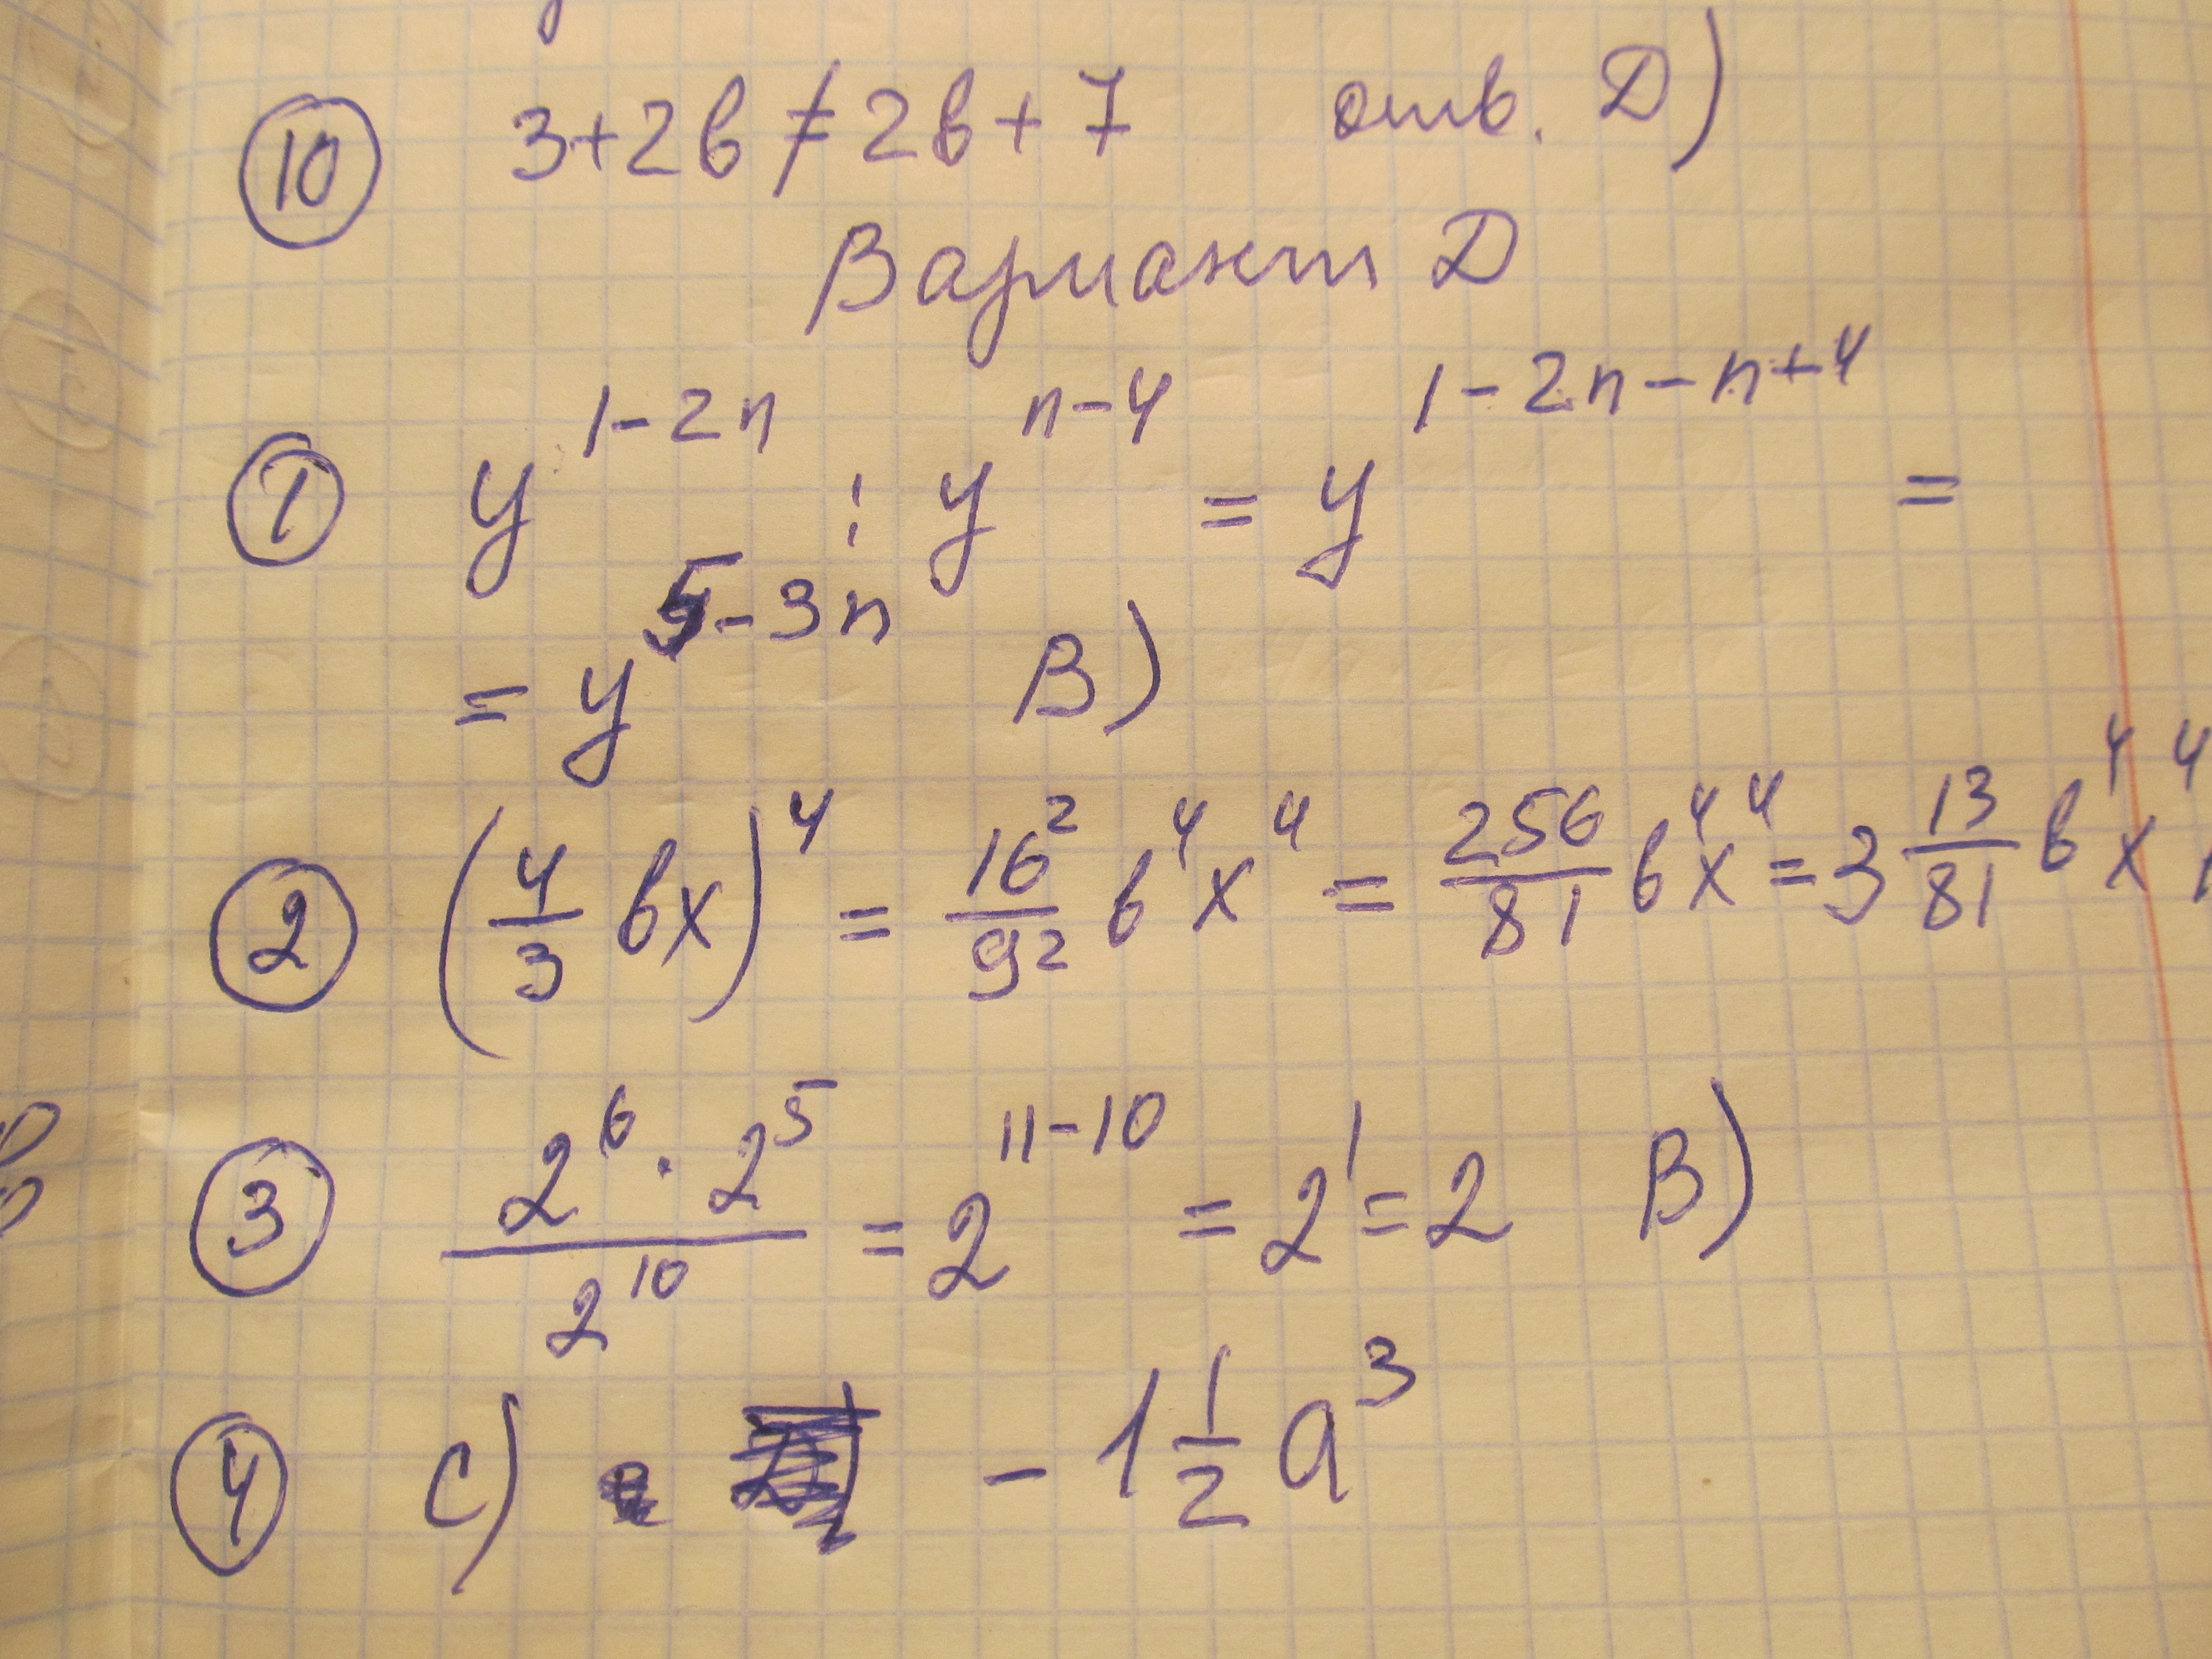 10 3+2b ≠ 2b+7 отв. D)
Вариант D
1 y^{1-2n} : y^{n-4} = y^{1-2n-n+4} =
= y^{5-3n} B)
2 (4/3 bx)^4 = 16^2/9^2 b^4x^4 = 256/81 b^4x^4 = 3 13/81 b^4x^4
3 (2^6 · 2^5)/2^{10} = 2^{11-10} = 2^1 = 2 B)
4 C) - 1 1/2 a^3